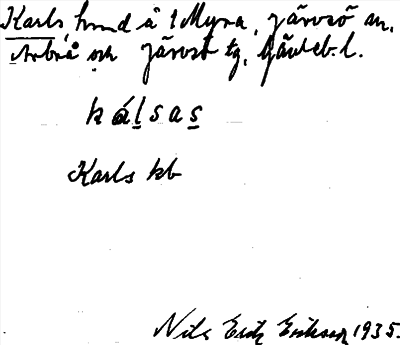 Karls, hmd å 1 Myra, Järvsö sn,
Arbrå och Järvsö tg, Gävleb. l.
kálsas
Karls kb
Nils Erik Eriksson 1935.